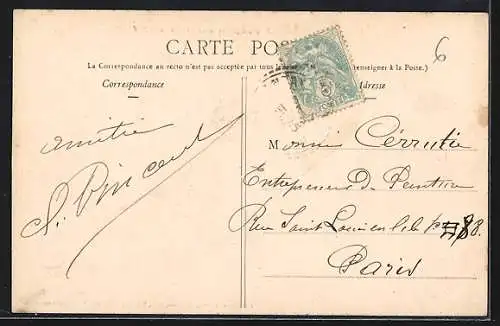 6
CARTE POS
La Correspondance au recto n'est pas acceptée par tous (Renseigner à la Poste.)
Correspondance
Adresse
amitié
Vincent
Monsieur Cérrutie
Entrepreneur De Peinture
Rue Saint Louis en l'ile 88.
Paris